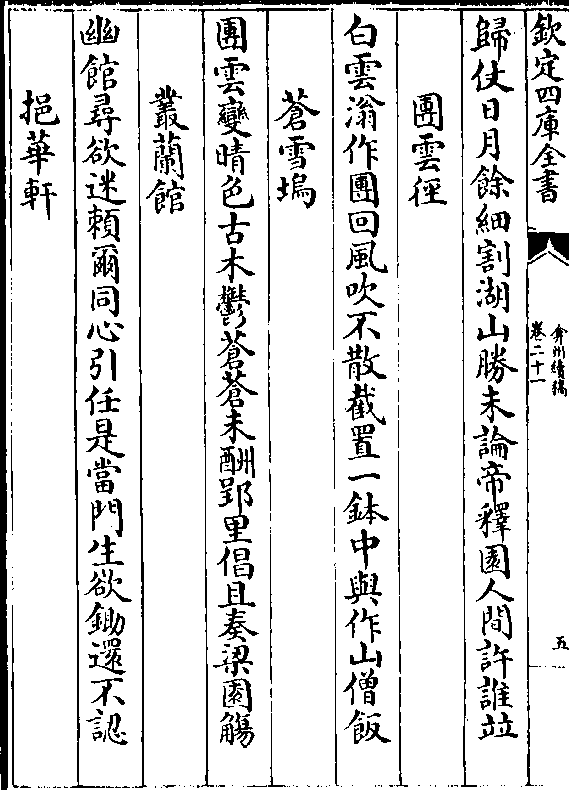 欽定四庫全書
弇州續稿
卷二十一
五
歸仗日月餘細割湖山勝未論帝釋園人間許誰竝
團雲徑
白雲滃作團回風吹不散截置一鉢中與作山僧飯
蒼雪塢
團雲變晴色古木鬱蒼蒼未酬郢里倡且奏梁園觴
叢蘭館
幽館尋欲迷賴爾同心引任是當門生欲鋤還不認
挹華軒